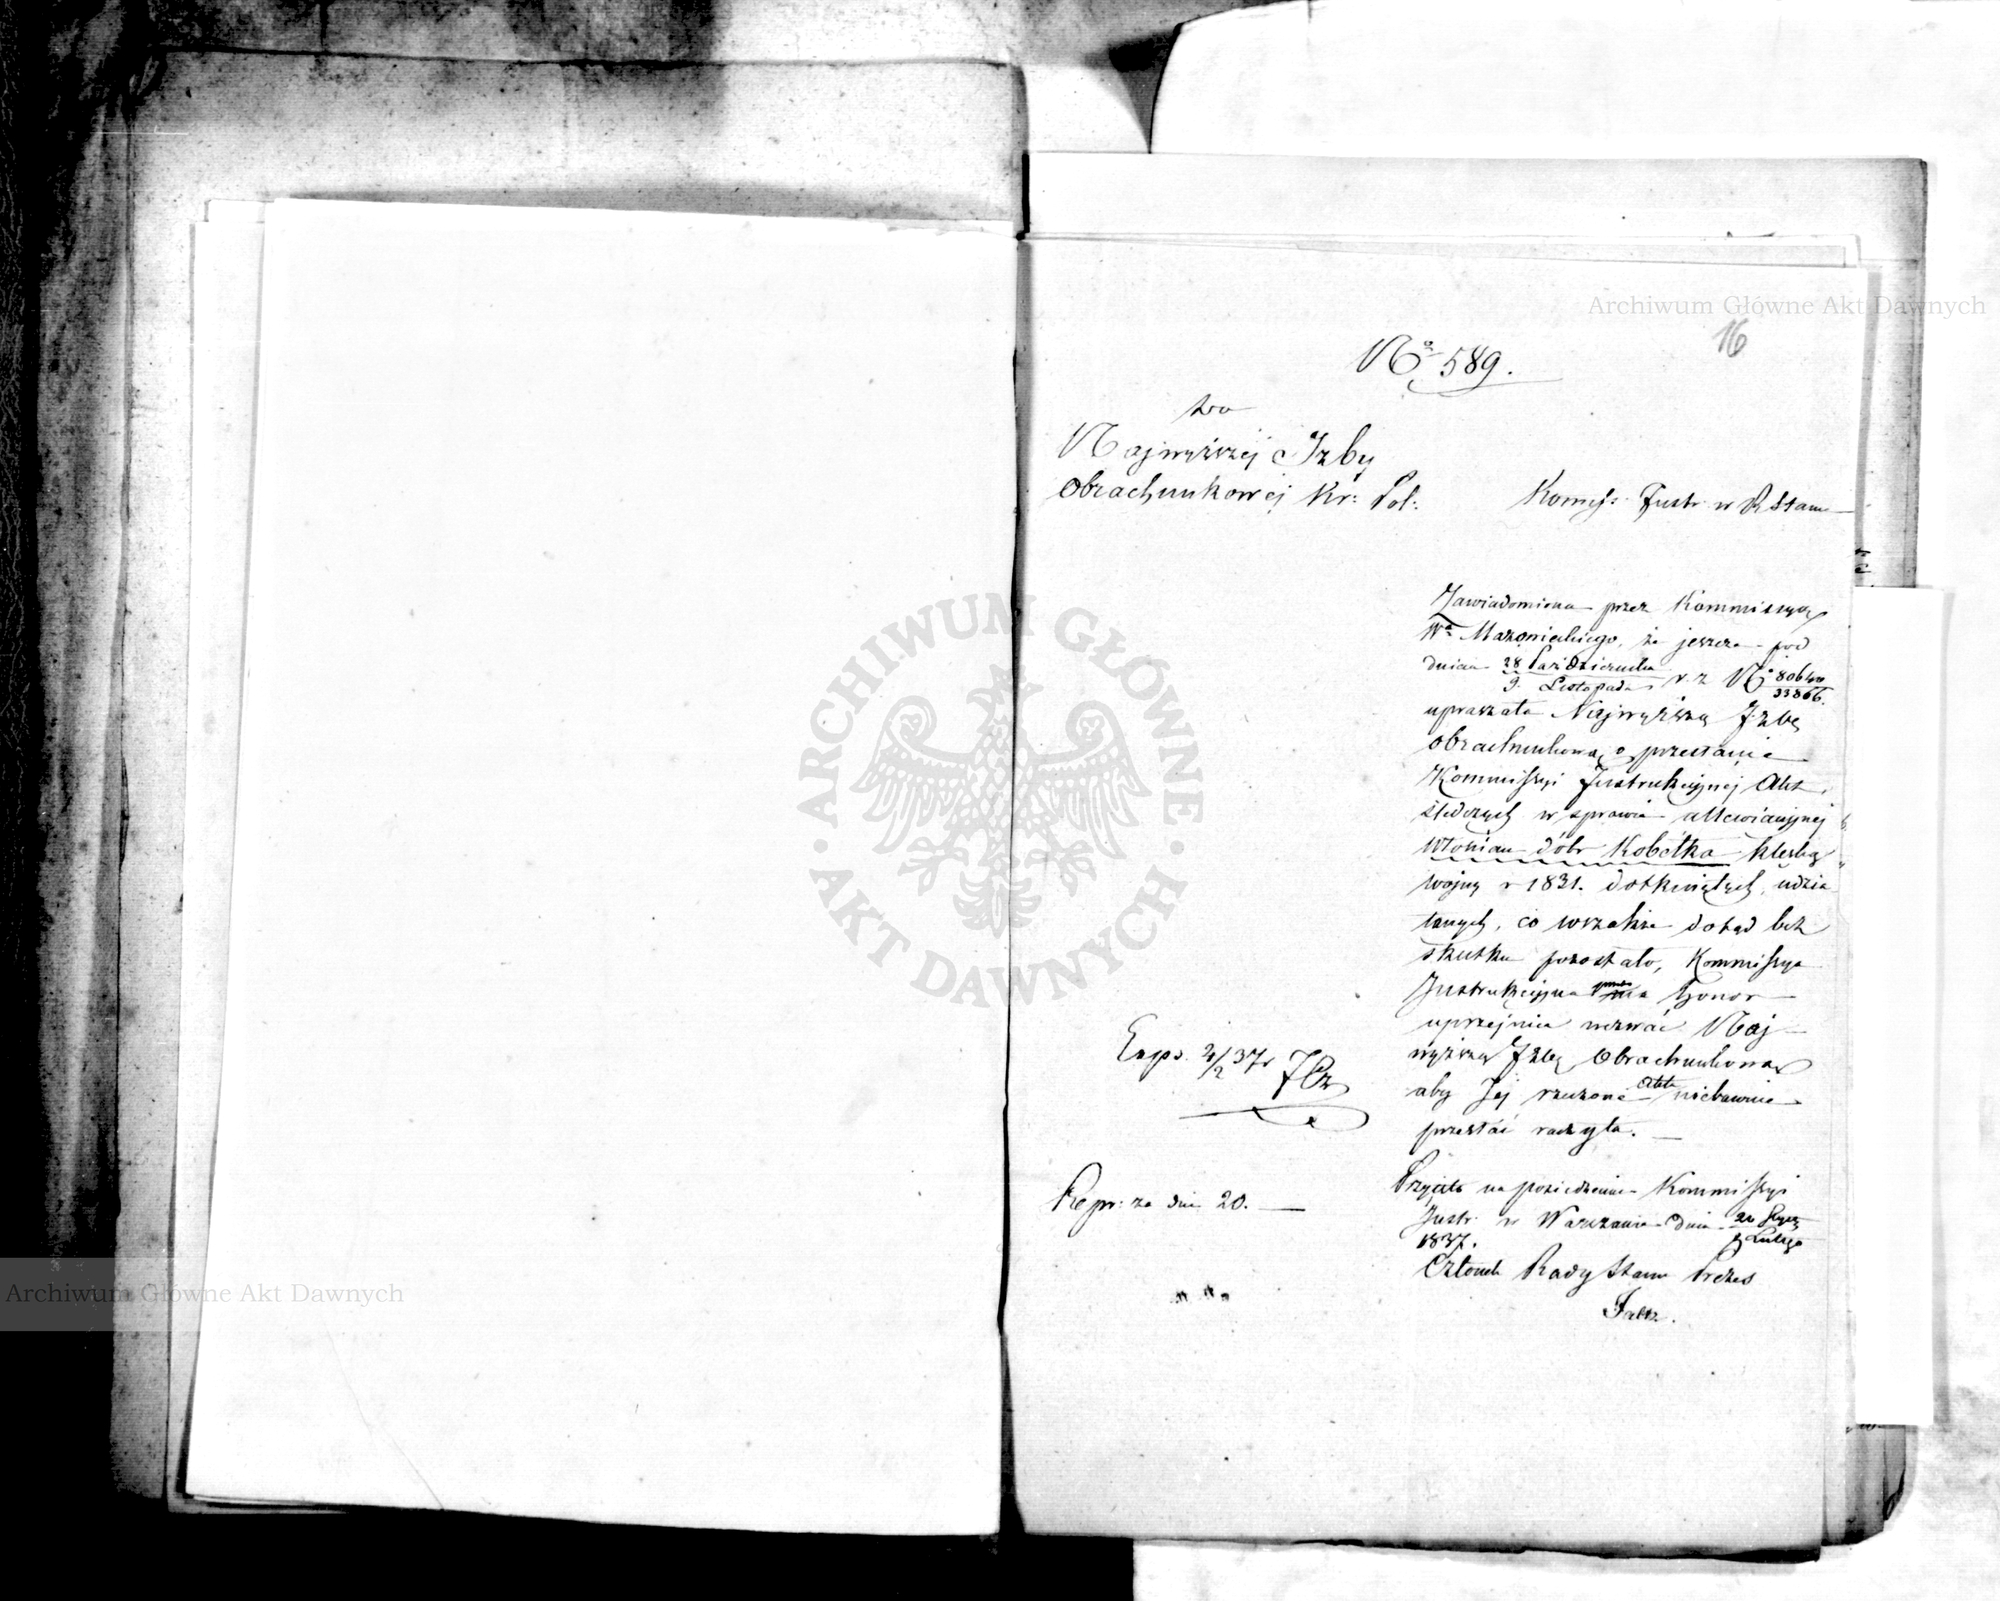 Archiwum Główne Akt Dawnych
16
No 589.
do
Najwyższéj Izby
Obrachunkowéj Kr: Pol:
Kommiss: Instr: w R Stanu
Zawiadomiona przez Kommissyą
Wa Mazowieckiego, że jeszcze pod
dniem 28 Października / 9 Listopada r. z No 80640 / 33866.
upraszała Najwyższą Izbę
Obrachunkową o przesłanie
Kommissyi Instrukcyjnej Akt
śledczych w sprawie allewiacyjnej
Włościan dóbr Kobełka klęską
wojny r 1831. dotkniętych, udzia
łanych, co wszakże dotąd bez
skutku pozostało, Kommissya
Instrukcyjna ma honor
uprzejmie wezwać Naj
wyższą Izbę Obrachunkową
aby Jej rzeczone Akta niebawnie
przesłać raczyła.
Exp. 4/2 37
Repr: za dni 20.
Przyjęto na posiedzeniu Kommissyi
Instr. w Warszawie dnia 20 Stycz / 1 Lutego
1837.
Członek Rady Stanu Prezes
Archiwum Główne Akt Dawnych
ARCHIWUM GŁÓWNE
AKT DAWNYCH